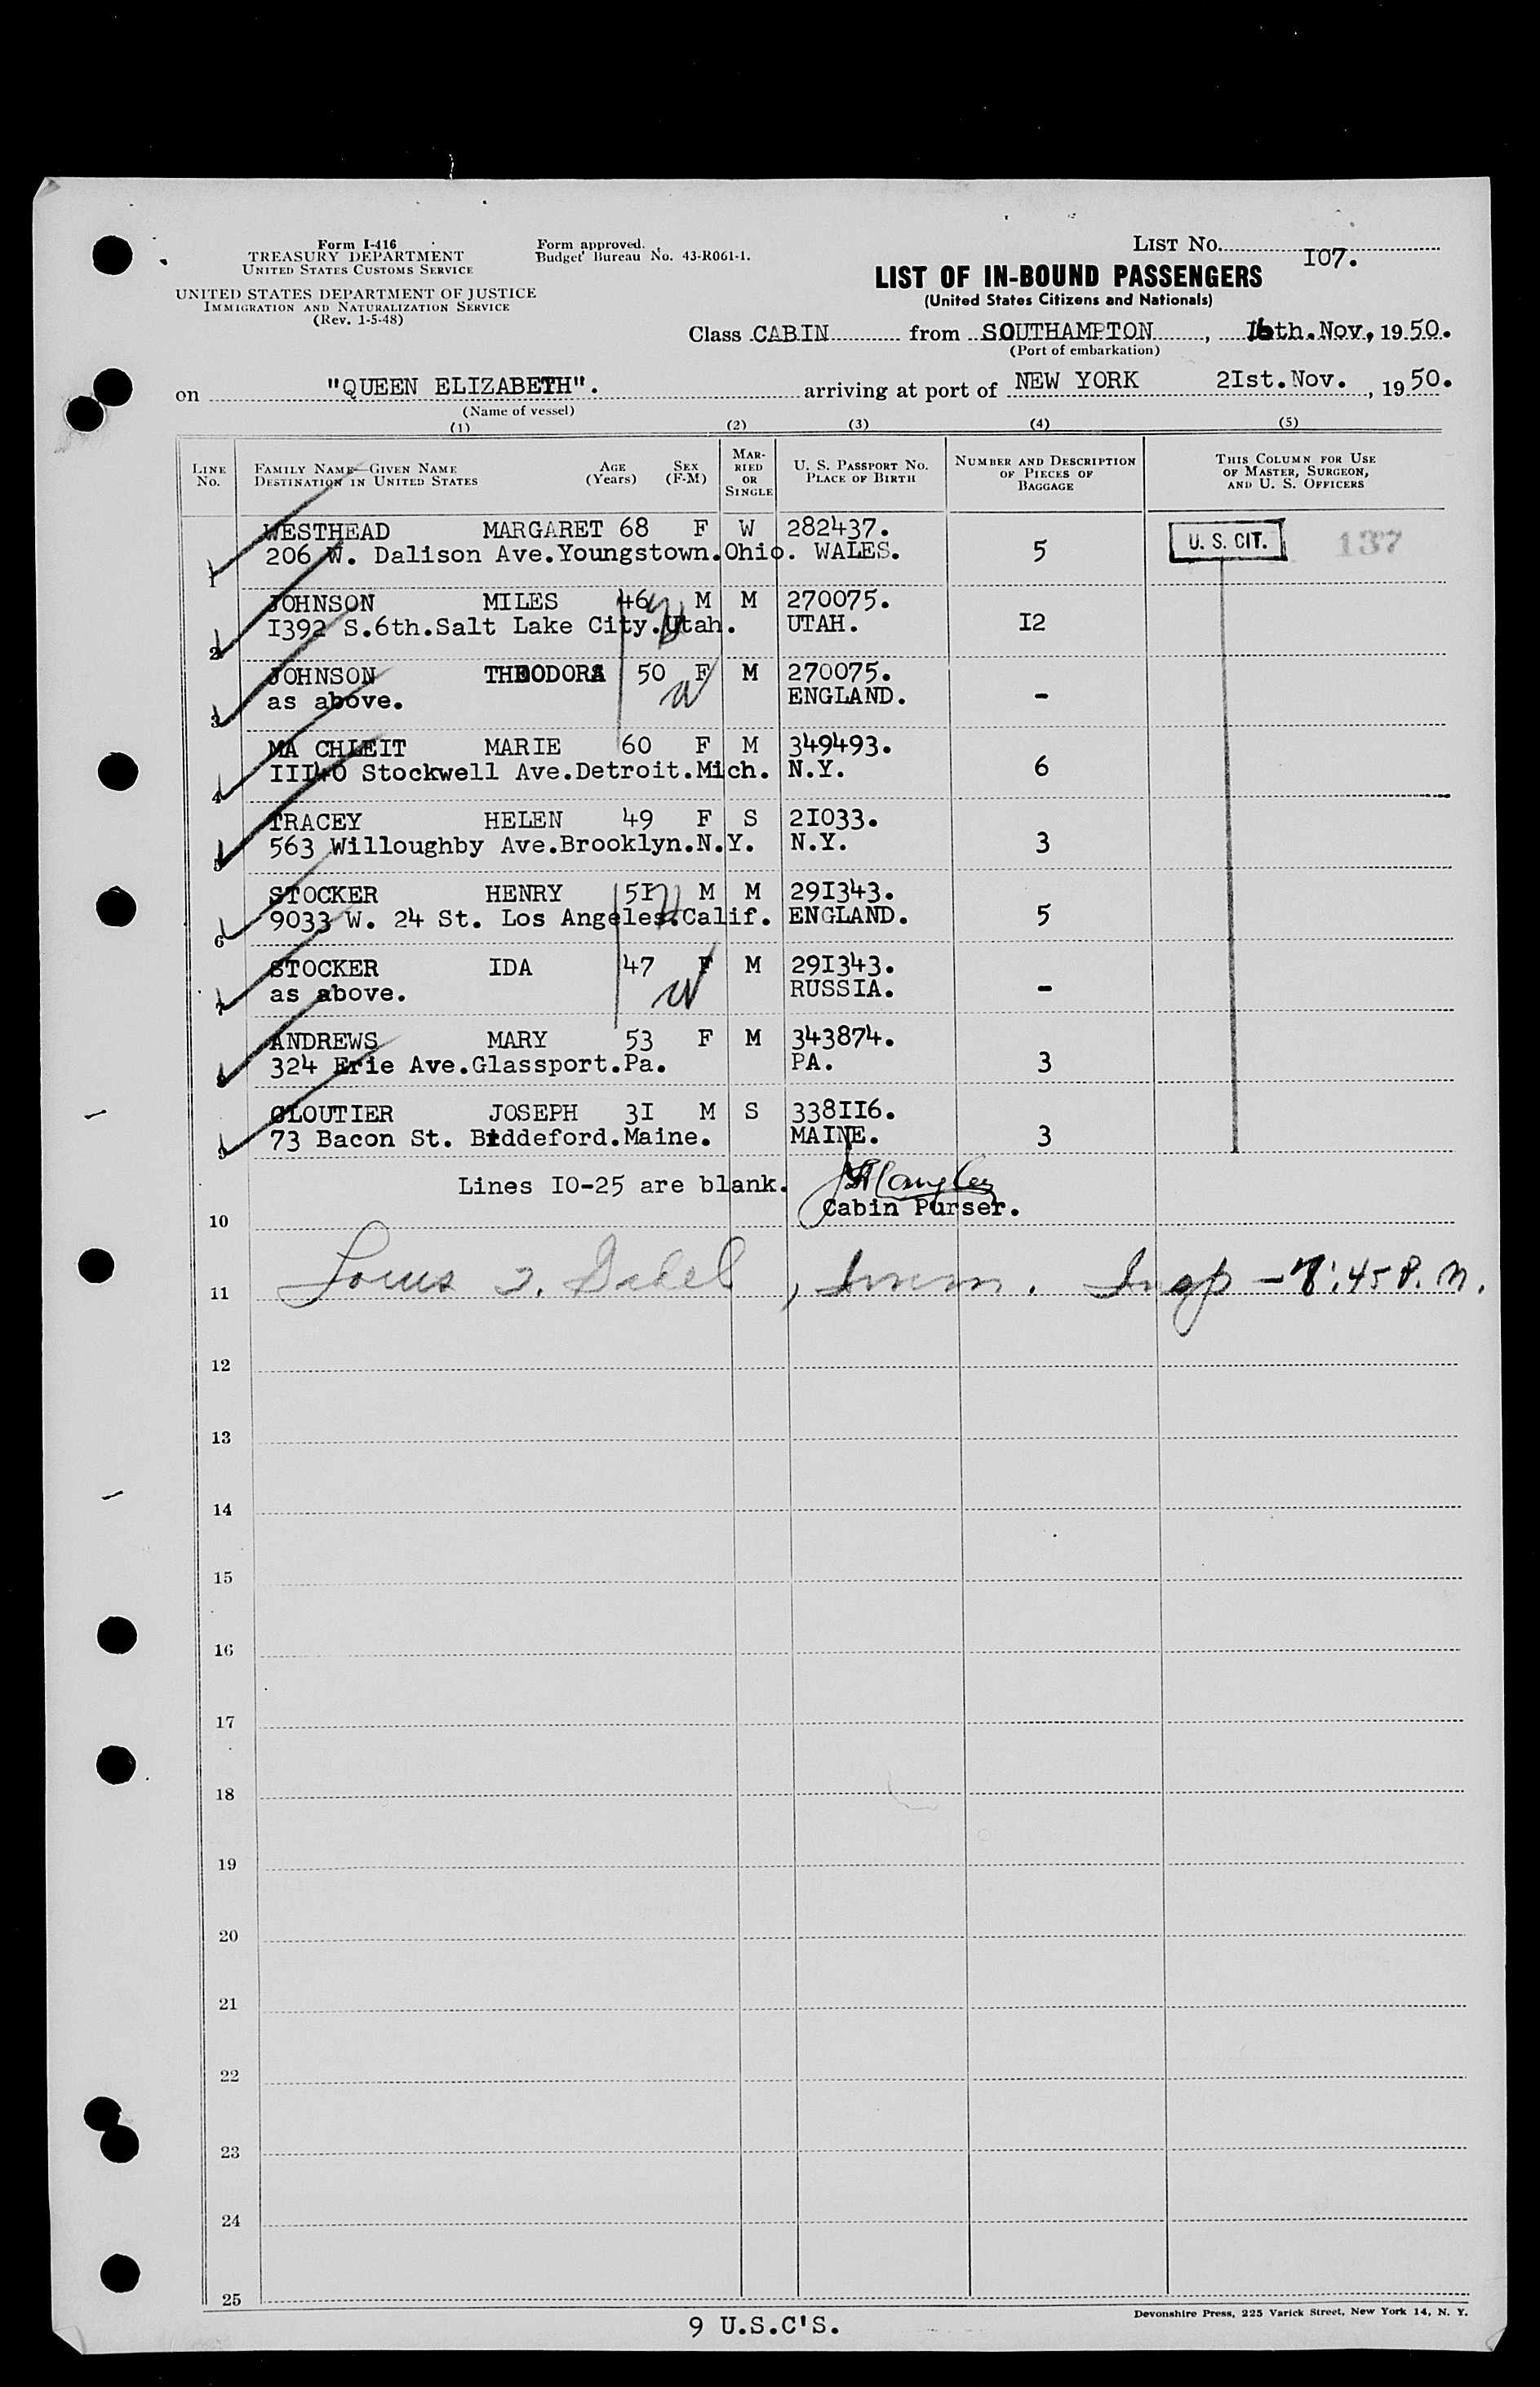 Form I-416
TREASURY DEPARTMENT
UNITED STATES CUSTOMS SERVICE
UNITED STATES DEPARTMENT OF JUSTICE
IMMIGRATION AND NATURALIZATION SERVICE
(Rev. 1-5-48)
Form approved.
Budget Bureau No. 43-R061-1.
LIST No. 107.
LIST OF IN-BOUND PASSENGERS
(United States Citizens and Nationals)
Class CABIN from SOUTHAMPTON, 16th.Nov, 1950.
(Port of embarkation)
on "QUEEN ELIZABETH". arriving at port of NEW YORK 2Ist.Nov. , 1950.
(Name of vessel)
(1) (2) (3) (4) (5)
LINE No. FAMILY NAME—GIVEN NAME DESTINATION IN UNITED STATES AGE (Years) SEX (F-M) MARRIED OR SINGLE U. S. PASSPORT No. PLACE OF BIRTH NUMBER AND DESCRIPTION OF PIECES OF BAGGAGE THIS COLUMN FOR USE OF MASTER, SURGEON, AND U. S. OFFICERS
1 WESTHEAD MARGARET 68 F W 282437. U. S. CIT. 137
206 W. Dalison Ave.Youngstown.Ohio. WALES. 5
2 JOHNSON MILES 46 M M 270075.
I392 S.6th.Salt Lake City.Utah. UTAH. I2
3 JOHNSON THEODORA 50 F M 270075.
as above. ENGLAND. -
4 MA CHLEIT MARIE 60 F M 349493.
III40 Stockwell Ave.Detroit.Mich. N.Y. 6
5 TRACEY HELEN 49 F S 2I033.
563 Willoughby Ave.Brooklyn.N.Y. N.Y. 3
6 STOCKER HENRY 5I M M 29I343.
9033 W. 24 St. Los Angeles.Calif. ENGLAND. 5
7 STOCKER IDA 47 F M 29I343.
as above. RUSSIA. -
8 ANDREWS MARY 53 F M 343874.
324 Erie Ave.Glassport.Pa. PA. 3
9 CLOUTIER JOSEPH 3I M S 338II6.
73 Bacon St. Biddeford.Maine. MAINE. 3
Lines IO-25 are blank.
Cabin Purser.
10
11 Insp - 7:45 P.M.
12
13
14
15
16
17
18
19
20
21
22
23
24
25
9 U.S.C'S.
Devonshire Press, 225 Varick Street, New York 14, N. Y.